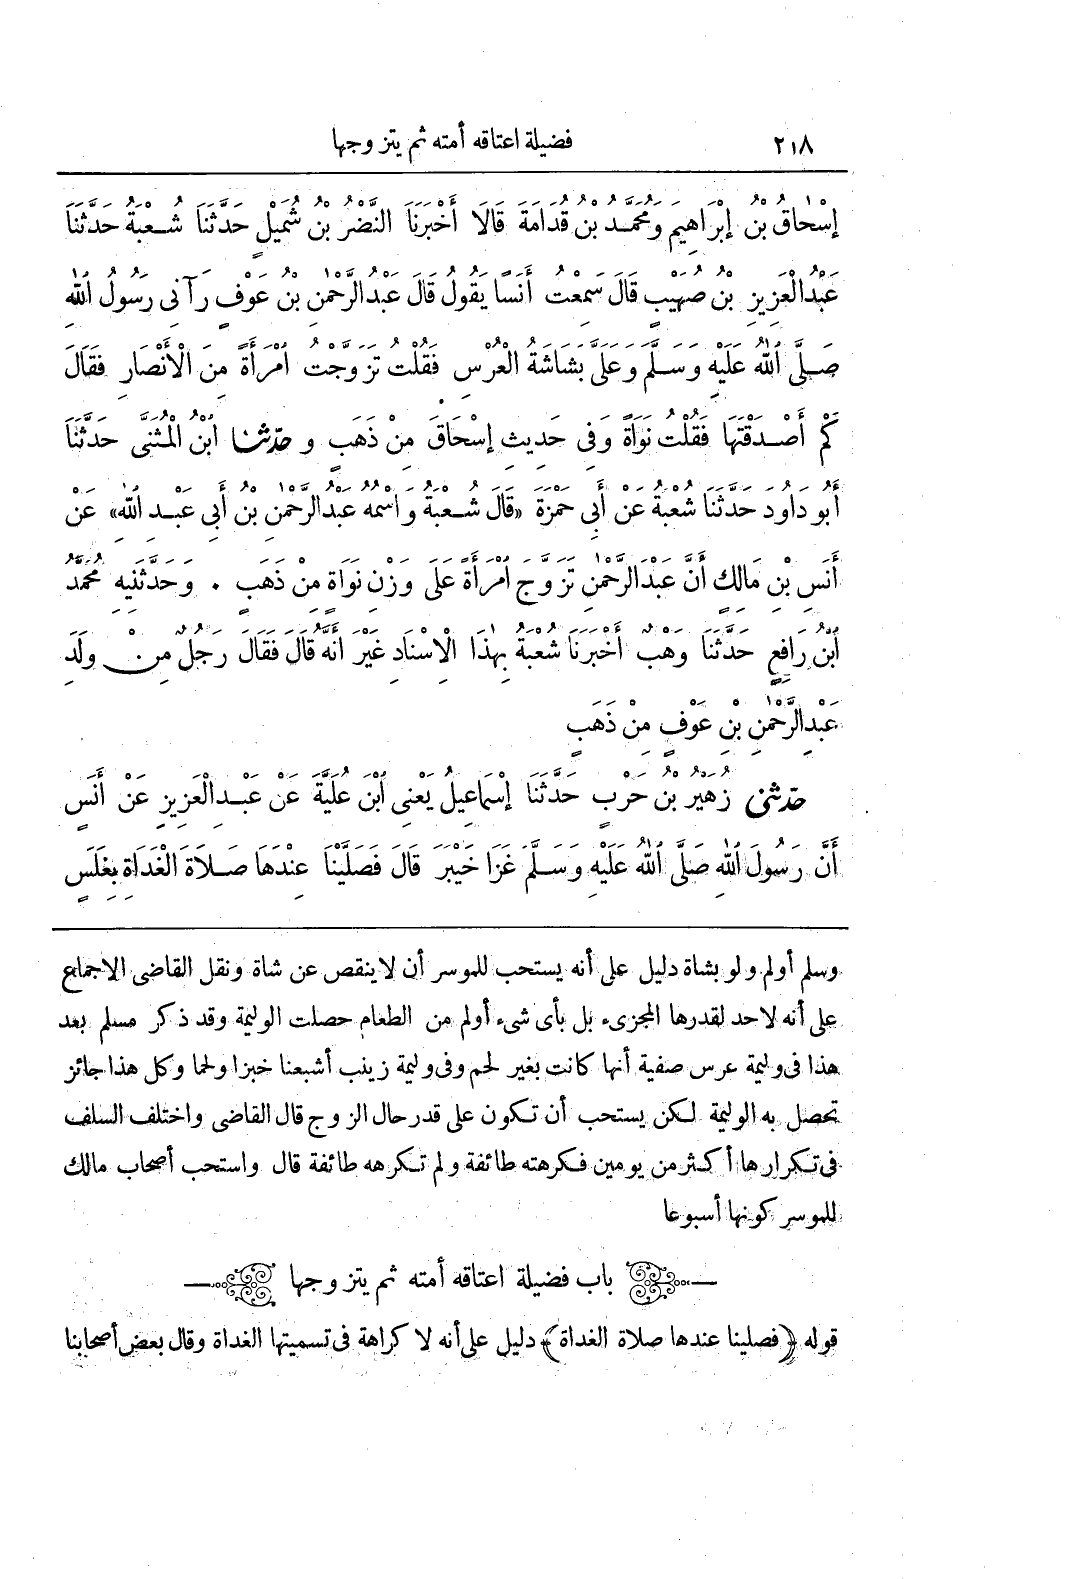 ٢١٨ فضيلة اعتاقه أمته ثم يتزوجها
إِسْحَاقُ بْنُ إِبْرَاهِيمَ وَمُحَمَّدُ بْنُ قُدَامَةَ قَالَا أَخْبَرَنَا النَّضْرُ بْنُ شُمَيْلٍ حَدَّثَنَا شُعْبَةُ حَدَّثَنَا
عَبْدُالْعَزِيزِ بْنُ صُهَيْبٍ قَالَ سَمِعْتُ أَنَسًا يَقُولُ قَالَ عَبْدُالرَّحْمٰنِ بْنُ عَوْفٍ رَآنِى رَسُولُ اللهِ
صَلَّى اللهُ عَلَيْهِ وَسَلَّمَ وَعَلَىَّ بَشَاشَةُ الْعُرْسِ فَقُلْتُ تَزَوَّجْتُ امْرَأَةً مِنَ الْأَنْصَارِ فَقَالَ
كَمْ أَصْدَقْتَهَا فَقُلْتُ نَوَاةً وَفِى حَدِيثِ إِسْحَاقَ مِنْ ذَهَبٍ و حَدَّثَنَا ابْنُ الْمُثَنَّى حَدَّثَنَا
أَبُو دَاوُدَ حَدَّثَنَا شُعْبَةُ عَنْ أَبِى حَمْزَةَ «قَالَ شُعْبَةُ وَاسْمُهُ عَبْدُالرَّحْمٰنِ بْنُ أَبِى عَبْدِ اللهِ» عَنْ
أَنَسِ بْنِ مَالِكٍ أَنَّ عَبْدَالرَّحْمٰنِ تَزَوَّجَ امْرَأَةً عَلَى وَزْنِ نَوَاةٍ مِنْ ذَهَبٍ . وَحَدَّثَنِيهِ مُحَمَّدُ
ابْنُ رَافِعٍ حَدَّثَنَا وَهْبٌ أَخْبَرَنَا شُعْبَةُ بِهٰذَا الْإِسْنَادِ غَيْرَ أَنَّهُ قَالَ فَقَالَ رَجُلٌ مِنْ وَلَدِ
عَبْدِالرَّحْمٰنِ بْنِ عَوْفٍ مِنْ ذَهَبٍ
حَدَّثَنِى زُهَيْرُ بْنُ حَرْبٍ حَدَّثَنَا إِسْمَاعِيلُ يَعْنِى ابْنَ عُلَيَّةَ عَنْ عَبْدِالْعَزِيزِ عَنْ أَنَسٍ
أَنَّ رَسُولَ اللهِ صَلَّى اللهُ عَلَيْهِ وَسَلَّمَ غَزَا خَيْبَرَ قَالَ فَصَلَّيْنَا عِنْدَهَا صَلَاةَ الْغَدَاةِ بِغَلَسٍ
وسلم أولم ولو بشاة دليل على أنه يستحب للموسر أن لاينقص عن شاة ونقل القاضى الاجماع
على أنه لاحد لقدرها المجزىء بل بأى شىء أولم من الطعام حصلت الوليمة وقد ذكر مسلم بعد
هذا فى وليمة عرس صفية أنها كانت بغير لحم وفى وليمة زينب أشبعنا خبزا ولحما وكل هذا جائز
تحصل به الوليمة لكن يستحب أن تكون على قدر حال الزوج قال القاضى واختلف السلف
فى تكرارها أكثر من يومين فكرهته طائفة ولم تكرهه طائفة قال واستحب أصحاب مالك
للموسر كونها أسبوعا
باب فضيلة اعتاقه أمته ثم يتزوجها
قوله ﴿فصلينا عندها صلاة الغداة﴾ دليل على أنه لا كراهة فى تسميتها الغداة وقال بعض أصحابنا